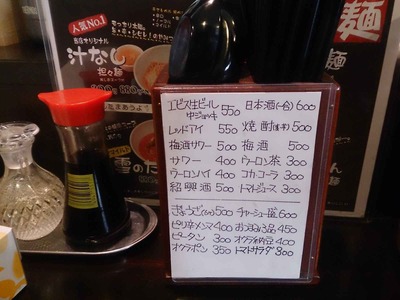 人気No.1
汁なし
担々麺
麺
エビス生ビール 中ジョッキ 550
日本酒(一合) 600
レッドアイ 550
焼酎 500
梅酒サワー 500
梅酒 500
サワー 400
ウーロン茶 300
ウーロンハイ 400
コカコーラ 300
紹興酒 500
トマトジュース 300
ぎょうざ 500
チャーシュー 600
ピリ辛メンマ 400
おつまみ3品 450
ピータン 300
オクラ納豆 400
オクラポン 350
トマトサラダ 300